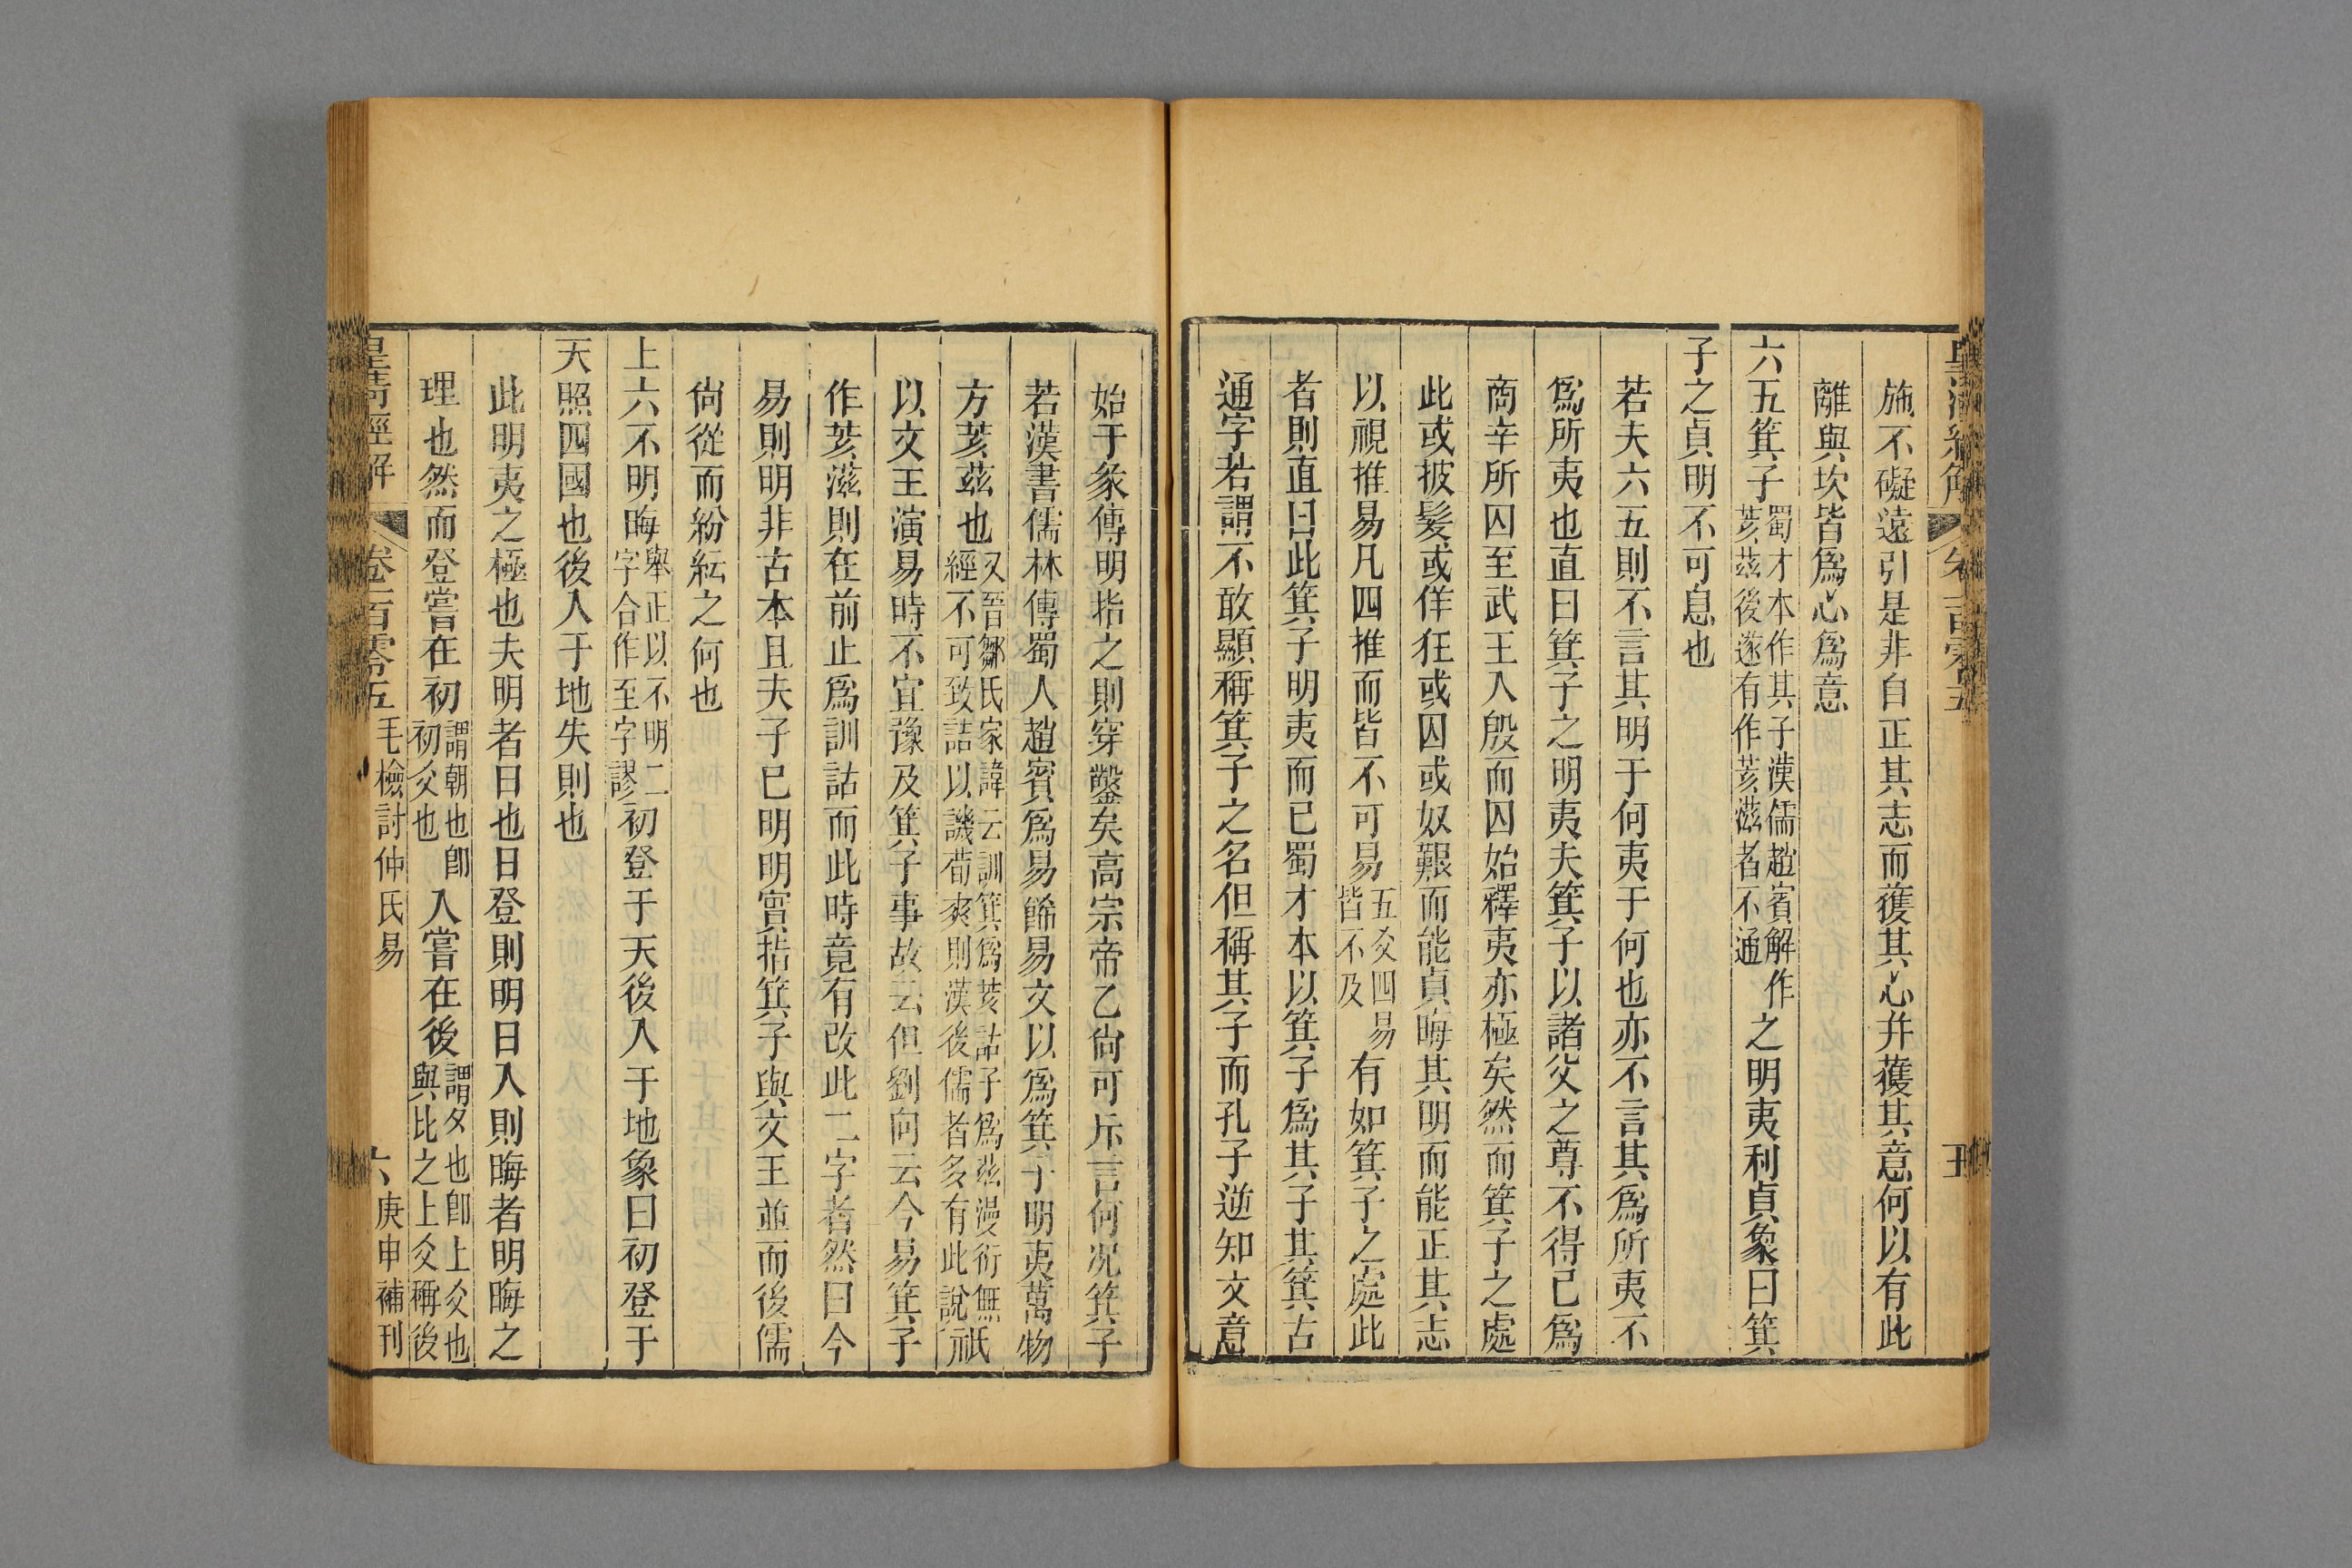 施不礙遠引是非自正其志而獲其心并獲其意何以有此
離與坎皆爲心爲意
六五箕子蜀才本作其子漢儒趙賓解作荄茲後遂有作荄滋者不通之明夷利貞象曰箕
子之貞明不可息也
若夫六五則不言其明于何夷于何也亦不言其爲所夷不
爲所夷也直曰箕子之明夷夫箕子以諸父之尊不得已爲
商辛所囚至武王入殷而囚始釋夷亦極矣然而箕子之處
此或披髮或佯狂或囚或奴艱而能貞晦其明而能正其志
以視推易凡四推而皆不可易五爻四易皆不及有如箕子之處此
者則直曰此箕子明夷而已蜀才本以箕子爲其子其箕古
通字若謂不敢顯稱箕子之名但稱其子而孔子逆知文意
始于彖傳明指之則穿鑿矣高宗帝乙尙可斥言何况箕子
若漢書儒林傳蜀人趙賓爲易餙易文以爲箕子明夷萬物
方荄茲也又晉鄒氏家諱云訓箕爲荄詁子爲茲漫衍無經不可致詰以譏荀爽則漢後儒者多有此說祇
以文王演易時不宜豫及箕子事故云但劉向云今易箕子
作荄滋則在前止爲訓詁而此時竟有改此二字者然曰今
易則明非古本且夫子已明明實指箕子與文王並而後儒
尙從而紛紜之何也
上六不明晦舉正以不明二字合作至字謬初登于天後入于地象曰初登于
天照四國也後入于地失則也
此明夷之極也夫明者日也日登則明日入則晦者明晦之
理也然而登嘗在初謂朝也卽初爻也入嘗在後謂夕也卽上爻也與比之上爻稱後
皇清經解 卷一百零五 毛檢討仲氏易 六 庚申補刊